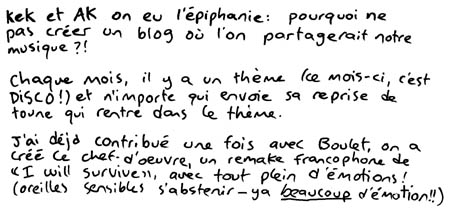 Kek et AK on eu l'épiphanie: pourquoi ne
pas créer un blog où l'on partagerait notre
musique?!
Chaque mois, il y a un thème (ce mois-ci, c'est
DISCO!) et n'importe qui envoie sa reprise de
toune qui rentre dans le thème.
J'ai déjà contribué une fois avec Boulet, on a
créé ce chef-d'oeuvre, un remake francophone de
«I will survive», avec tout plein d'émotions!
(oreilles sensibles s'abstenir - ya beaucoup d'émotion!!)